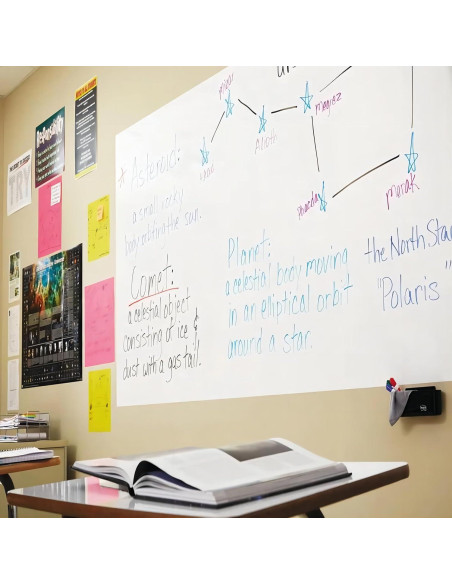 Asteroid:
a small rocky
body orbiting the sun.
Comet:
a celestial object
consisting of ice &
dust with a gas tail.
Planet:
a celestial body moving
in an elliptical orbit
around a star.
Alioth
megrez
merak
the North Star
"Polaris"
TRY